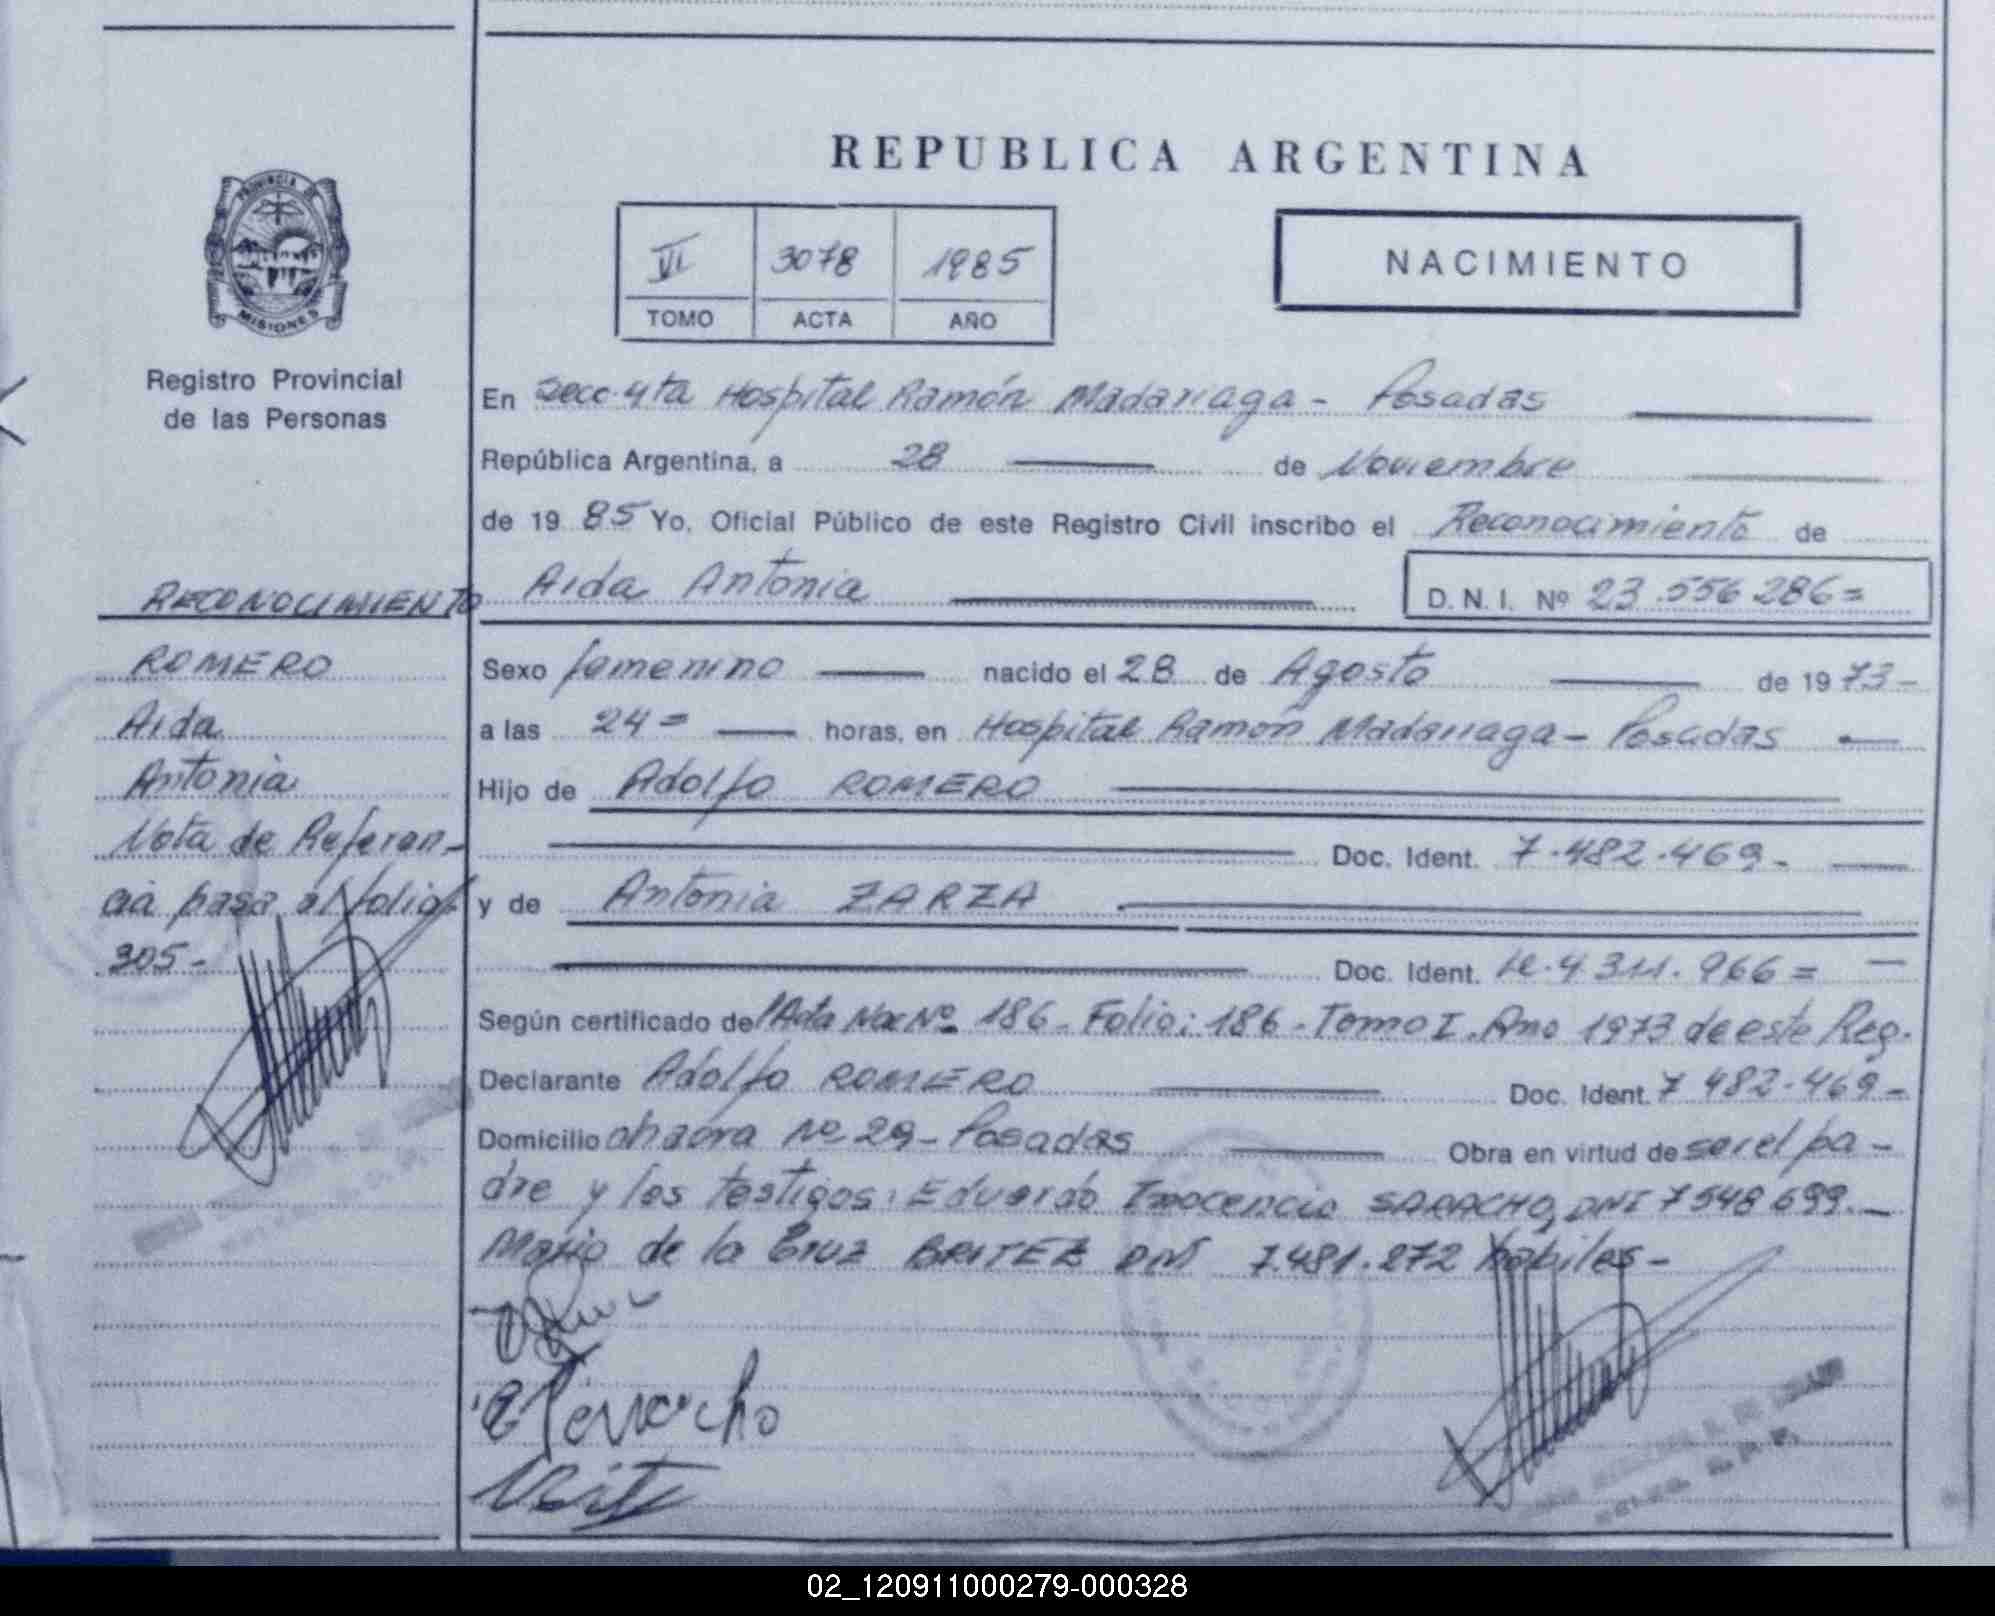 REPUBLICA ARGENTINA
PROVINCIA DE
MISIONES
Registro Provincial
de las Personas
VI 3078 1985
TOMO ACTA AÑO
NACIMIENTO
En Secc. 4ta Hospital Ramón Madariaga - Posadas
República Argentina, a 28 de Noviembre
de 1985 Yo, Oficial Público de este Registro Civil inscribo el Reconocimiento de
Aida Antonia D.N.I. Nº 23.556.286=
Sexo femenino nacido el 28 de Agosto de 1973-
a las 24= horas, en Hospital Ramón Madariaga - Posadas
Hijo de Adolfo ROMERO
Doc. Ident. 7.482.469-
y de Antonia ZARZA
Doc. Ident. 4.311.966=
Según certificado de Acta Nac Nº 186 - Folio: 186 - Tomo I. Año 1973 de este Reg.
Declarante Adolfo ROMERO Doc. Ident. 7 482.469-
Domicilio chacra Nº 29 - Posadas Obra en virtud de ser el pa-
dre y los testigos: Eduardo Inocencio SARACHO, DNI 7548699.-
Mario de la Cruz BRITEZ DNI 7.481.272 habiles-
RECONOCIMIENTO
ROMERO
Aida
Antonia
Nota de Referen-
cia pasa al folio
305-
02_120911000279-000328